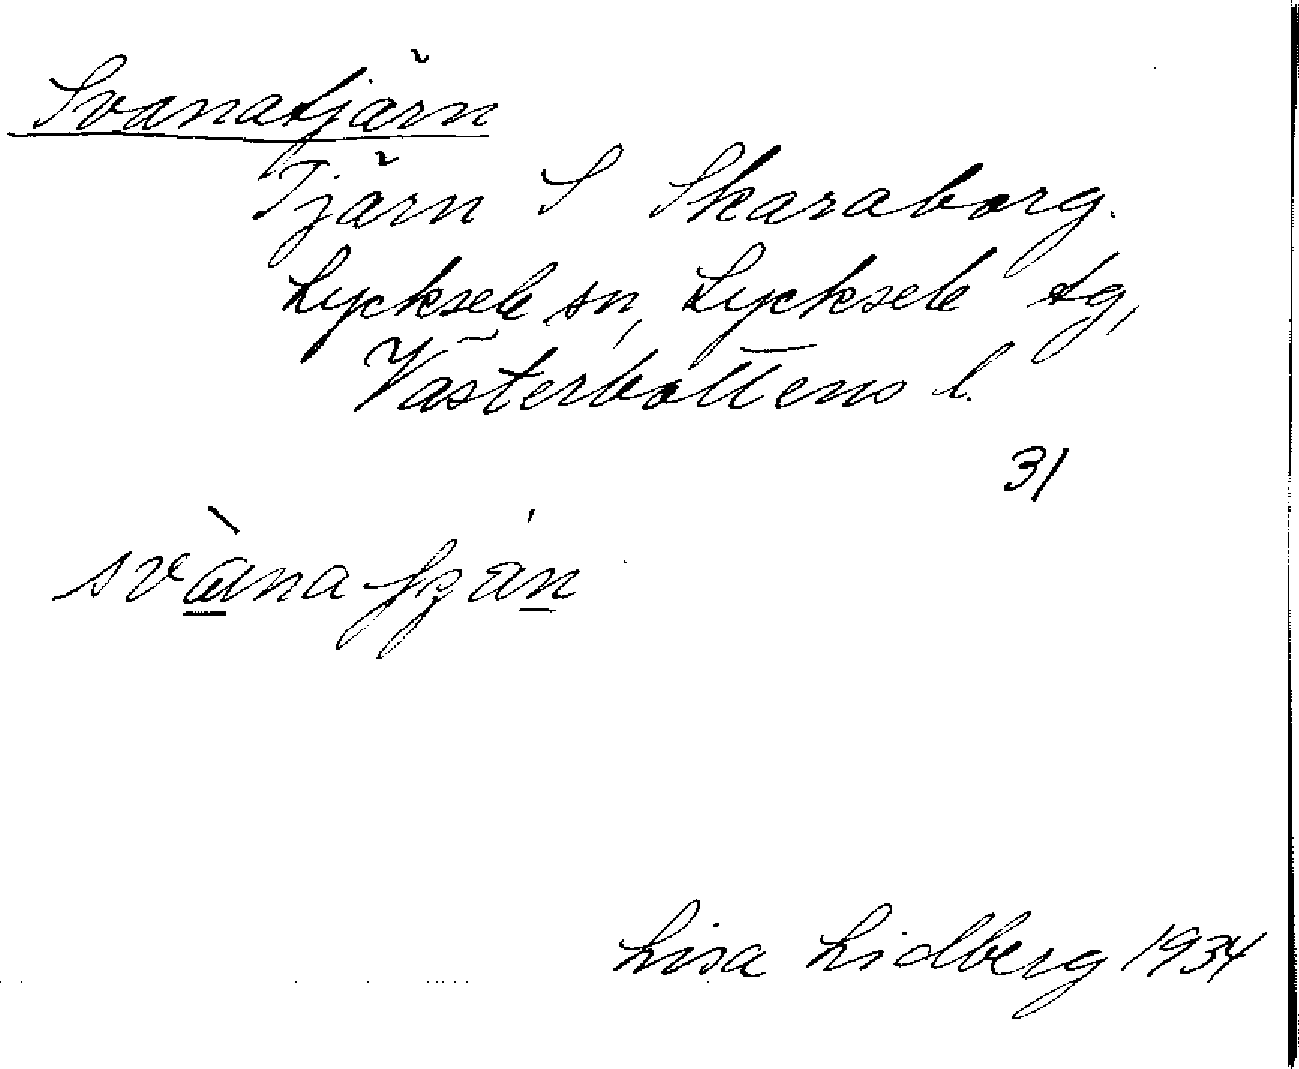 Svanatjärn
Tjärn S Skaraborg.
Lycksele sn, Lycksele tg,
Västerbottens l.
31
svàna
Lisa Lidberg 1934